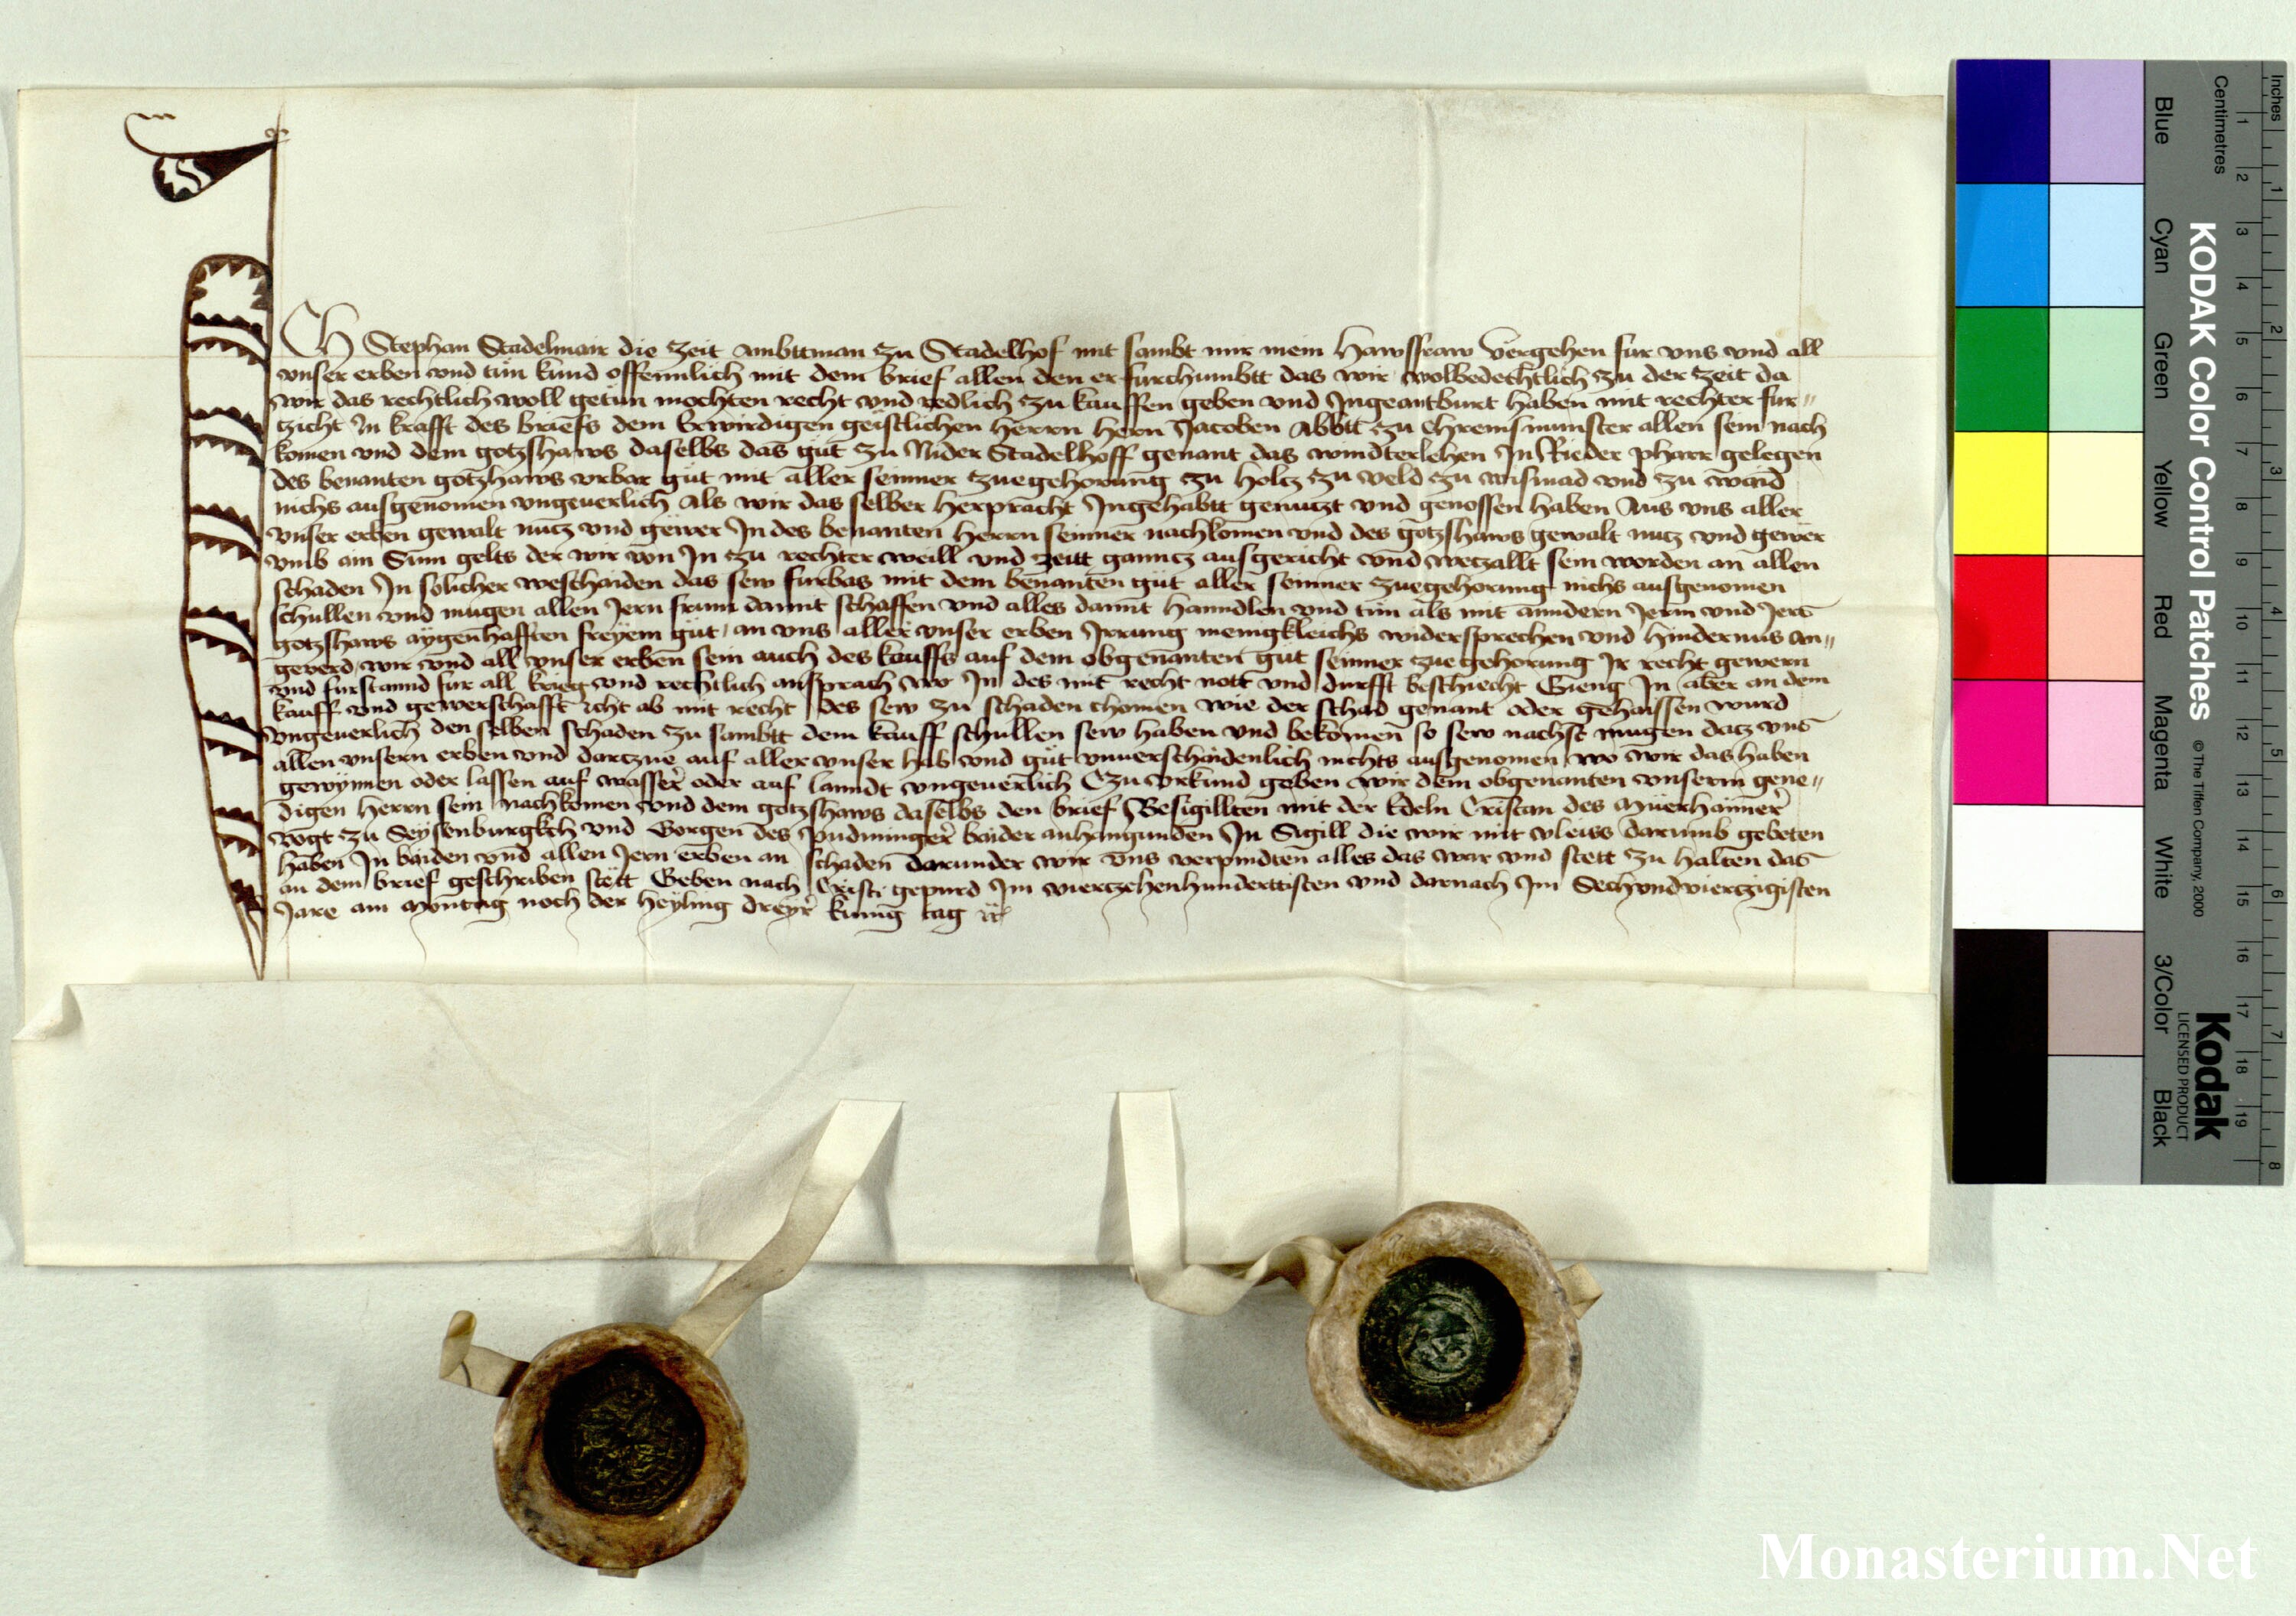 Ich Stephan Stadelmair die zeit ambttman zu Stadelhof mit sambt mir mein Hawsfraw vergehen fur vns vnd all
vnser erben vnd tun kund offennlich mit dem brief allen den er furchumbtt das wir wolbedechtlich zu der zeit da
wir das rechtlich woll getun mochten recht vnd redlich zu kauffen geben vnd Ingeantburt haben mit rechter fur〃
tzicht In krafft des briefs dem Erwirdigen geistlichen Herrn Hern Jacoben Abbtt zu Chremsmunster allen sein nach
komen vnd dem gotzshaws daselbs das gut zu Nider Stadelhoff genant das windterlehen In Rieder pharr gelegen
des benanten gotzhaws vrbar gut mit aller seinner zuegehorung zu holcz zu veld zu wismad vnd zu waid
nichs ausgenomen vngeuerlich Als wir das selber herpracht Ingehabtt genuczt vnd genossen haben Aus vns aller
vnser erben gewalt nucz vnd gewer In des benanten Herrn seinner nachkomen vnd des gotzshaws gewalt nucz vnd gewer
vmb ain Sum gelts der wir von In zu rechter weill vnd zeitt ganntz ausgericht vnd wetzallt sein worden an allen
schaden In solicher weschaiden das sew furbas mit dem benanten gut aller seinner zuegehorung nichs ausgenomen
schullen vnd mugen allen Jern frum damit schaffen vnd alles damit hanndlen vnd tun als mit anndern Jerm vnd Jers
gotzshaws aygenhafften freyem gut / an vns aller vnser erben Irrung menigkleichs widersprechen vnd hindernus an〃
geuerd / wir vnd all vnser erben sein auch des kauffs auf dem obgenanten gut seinner zuegehorung Ir recht gewern
vnd furstannd fur all krieg vnd rechtlich ansprach wo In des mit recht nott vnd durfft beschiecht Gieng In aber an dem
kauff vnd gewerschafft icht ab mit recht des sew zu schaden chomen wie der schad genant oder gehaissen wurd
vngeuerlich den selben schaden zu sambtt dem kauff schullen sew haben vnd bekomen so sew nachst mugen datz vns
allen vnsern erben vnd dartzue auf aller vnser hab vnd gut vnuerschaidenlich nichts ausgenomen wo wir das haben
gewynnen oder lassen auf wasser oder auf lanndt vngeuerlich Czu vrkund geben wir dem obgenanten vnserm gene〃
digen Herrn sein nachkomen vnd dem gotzshaws daselbs den brief Besigillten mit der Edeln Cristan des Müerhaimer
vogt zu Seysenburgkch vnd Gorgen des Pudminger baider anhangunden In Sigill die wir mit vleiss darumb gebeten
haben In baiden vnd allen Jern erben an schaden darunder wir vns verpindten alles das war vnd stett zu halten das
an dem brief geschriben stett Geben nach Cristi gepurd Im viertzehenhunderttisten vnd darnach Im Sechvndviertzigisten
Jare am Montag noch der Heyling dreyr kunig tag
Inches
Centimetres
Blue Cyan Green Yellow Red Magenta White 3/Color Black
KODAK Color Control Patches
© The Tiffen Company, 2000
Kodak
LICENSED PRODUCT
1 2 3 4 5 6 7 8 9 10 11 12 13 14 15 16 17 18 19
1 2 3 4 5 6 7 8
Monasterium.Net